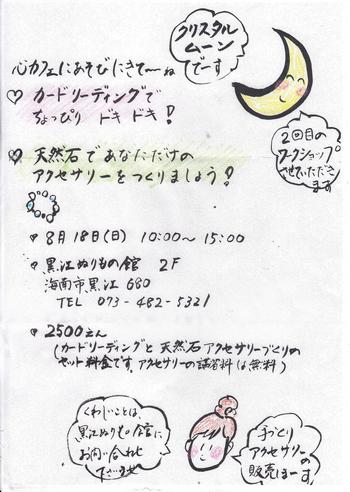 クリスタル
ムーン
でーす
心カフェにあそびにきて〜ね
カードリーディングで
ちょっぴり ドキ ドキ!
2回目の
ワークショップ
させていただき
ます
天然石であなただけの
アクセサリーをつくりましょう?
8月18日(日) 10:00〜15:00
黒江ぬりもの館 2F
海南市黒江 680
TEL 073-482-5321
2500えん
(カードリーディングと天然石アクセサリーづくりの
セット料金です。アクセサリーの講習料は無料)
くわしいことは、
黒江ぬりもの館に
お問い合わせ
下さいませ〜
手づくり
アクセサリーの
販売もーす。